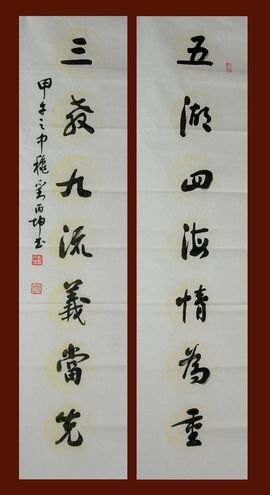 五湖四海情為重
三教九流義當先
甲午之中秋　丙坤书